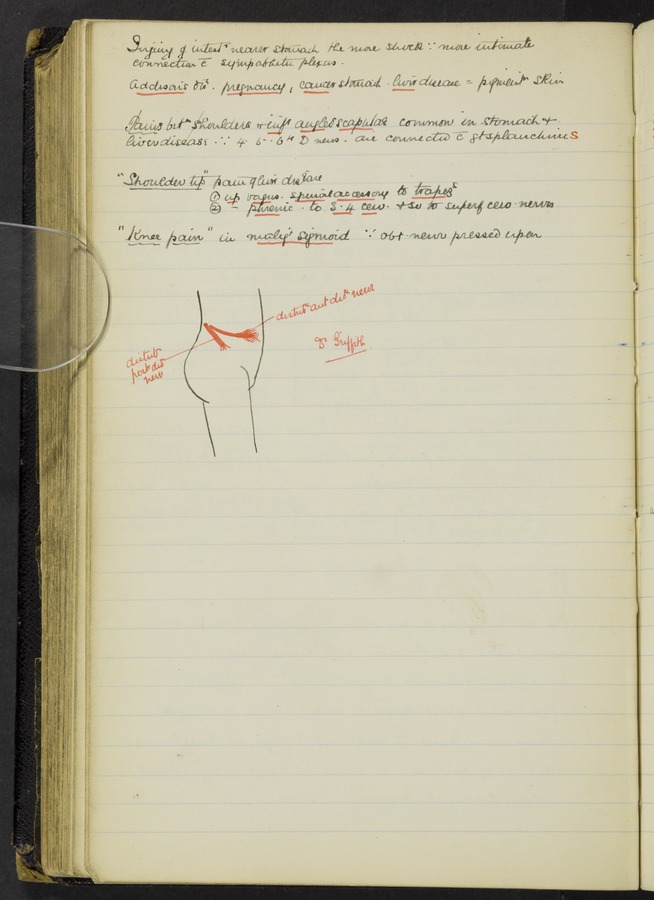 Injury of intestˢ nearer stomach the more shock ∵ more intimate
connection c̄ sympathetic plexus.
Addisons disᵉ. pregnancy, cancer stomach. liver disease = pigmentⁿ skin
Pains betⁿ shoulders & infʳ angles scapulae common in stomach &
liver disease ∵ 4. 5. 6ᵗʰ D nervs. are connected c̄ gt splanchnics
"Shoulder tip" pain of liver disease
① up vagus. spinal accessory to trapezˢ
② – phrenic. to 3. 4 cerv. & so to superf cerv. nerves
"Knee pain" in maligᵗ sigmoid ∵ obt. nerve pressed upon
distribⁿ ant divⁿ nerve
Dr Griffith
distribⁿ
post divⁿ
nerv